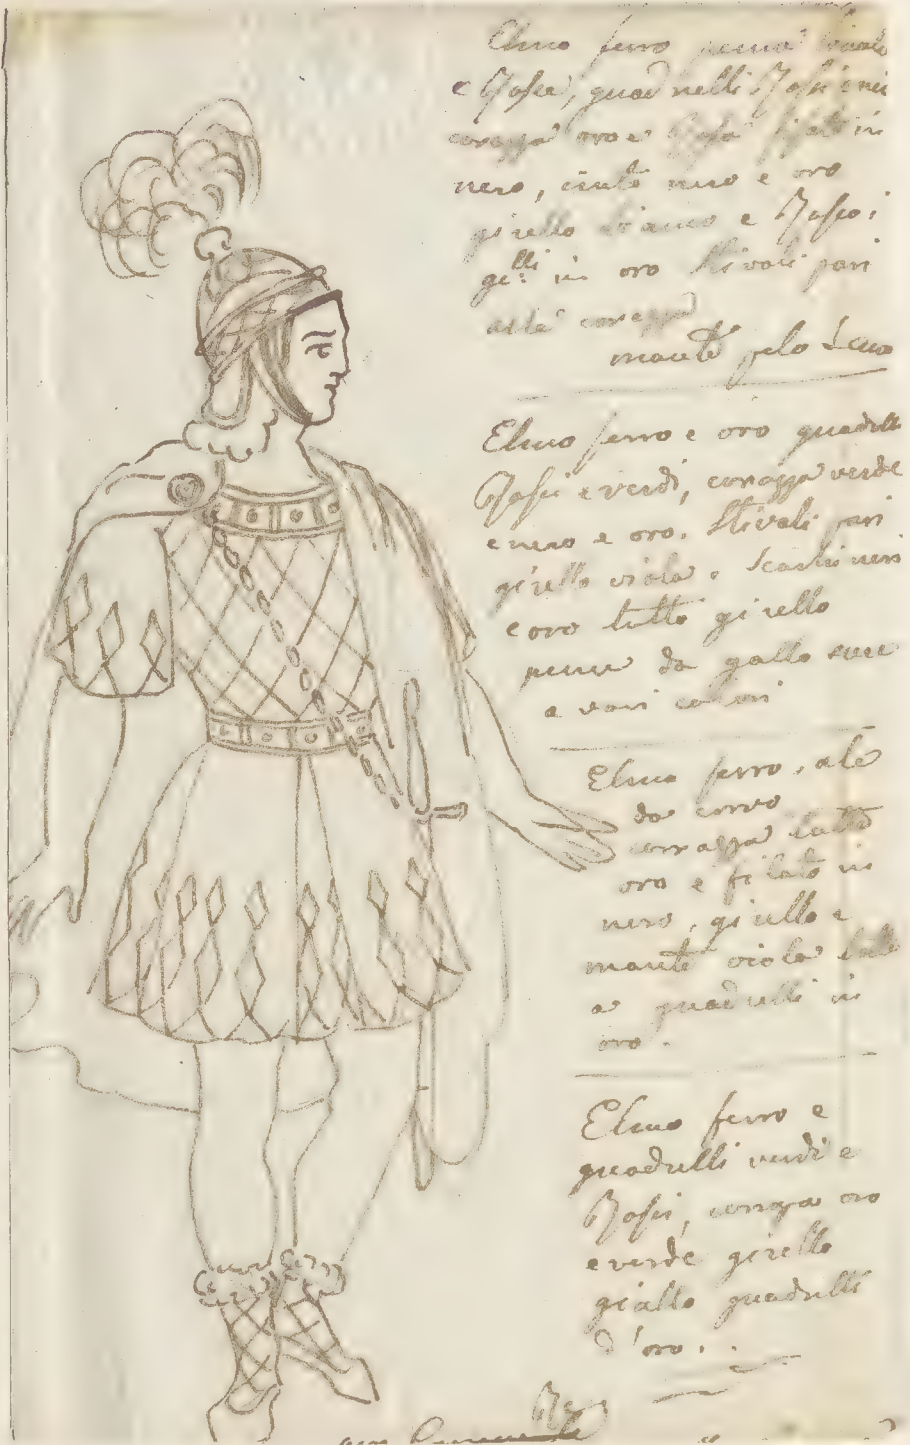 Elmo ferro penna
e Rossa, quadrelli Rossi e neri
corazza oro e Rossa filato in
nero, cinto nero e oro
girello bianco e Rosso i
g.lli in oro Stivali pari
alla corazza
manto pelo
Elmo ferro e oro quadrelli
Rossi e verdi, corazza verde
e nero e oro. Stivali pari
girello viola. neri
e oro tutto girello
penne da gallo
a vari colori
Elmo ferro, ale
da corvo
corrazza tutto
oro e filato in
nero, girello e
manto viola
a quadrelli in
oro.
Elmo ferro e
quadrelli verdi e
Rossi, corazza oro
e verde girello
giallo quadrelli
d'oro.